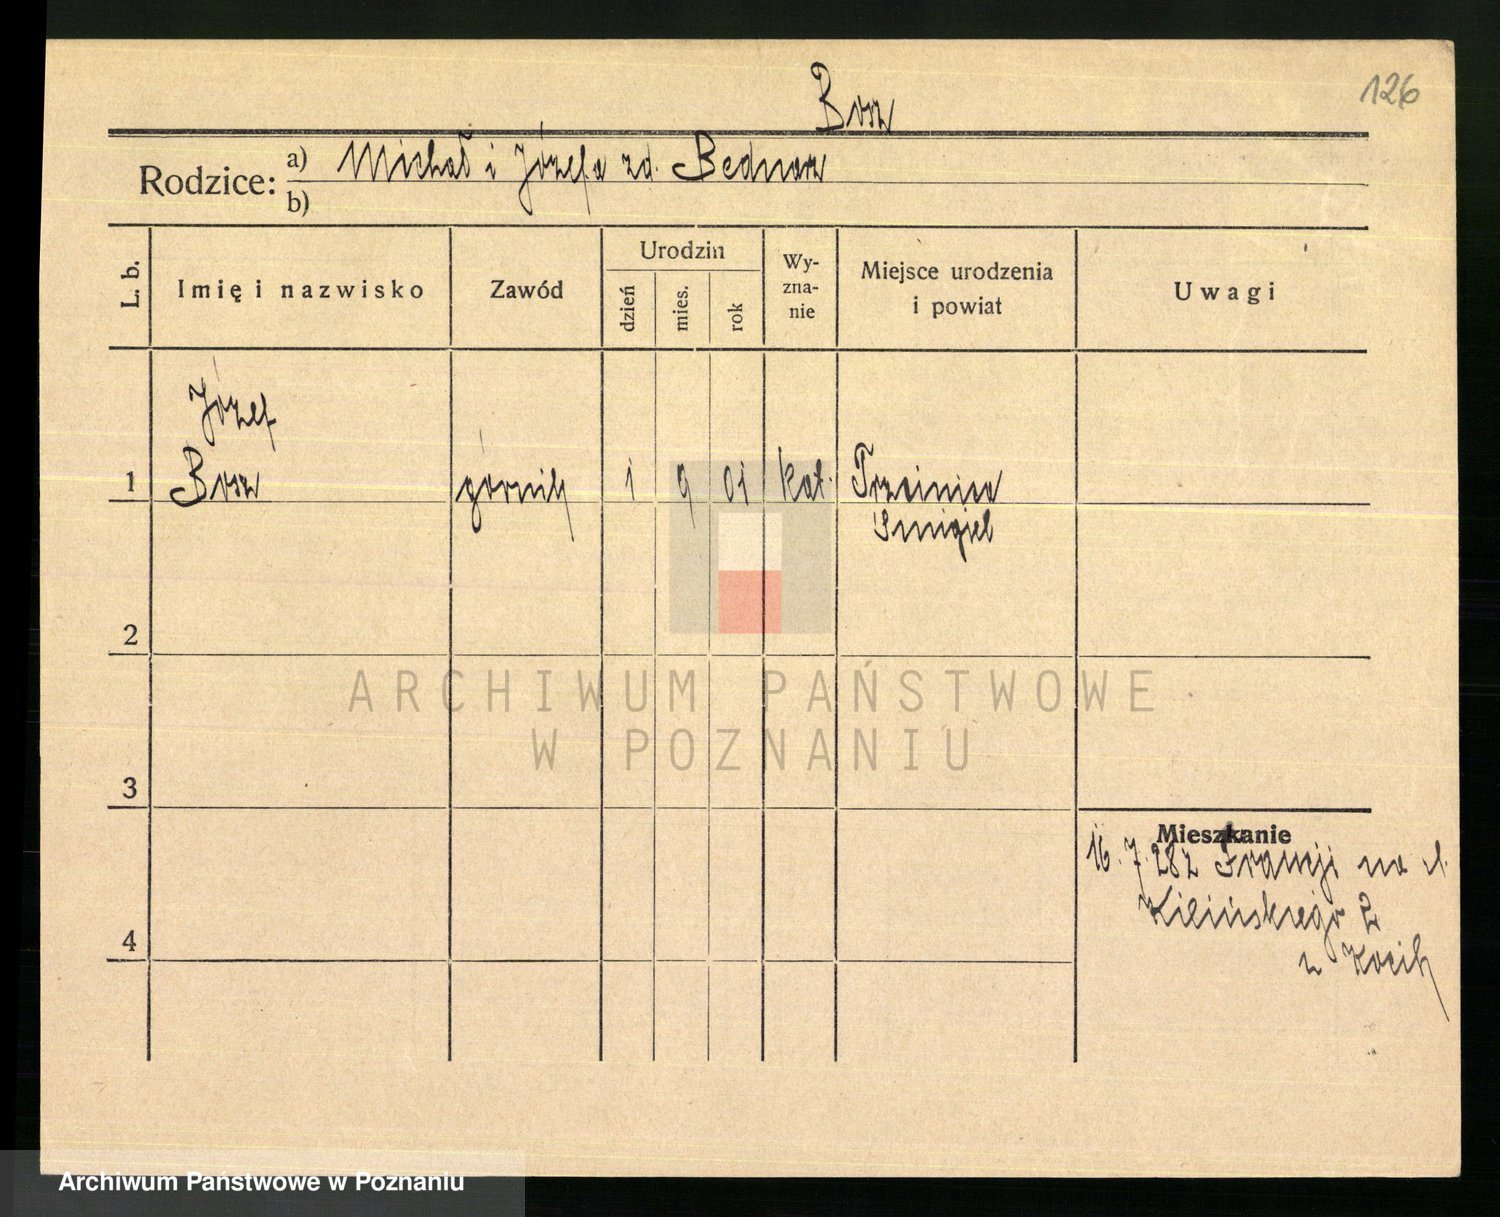 Borz
126
Rodzice: a) Michał i Józefa zd. Bednarz
b)
L. b.
Imię i nazwisko
Zawód
Urodzin
dzień
mies.
rok
Wy-
zna-
nie
Miejsce urodzenia
i powiat
Uwagi
Józef
1 Borz górnik 1 9 01 kat. Trzcinica
Smigiel
2
ARCHIWUM PAŃSTWOWE
W POZNANIU
3
Mieszkanie
16. 7. 28 z Francji na ul.
Kilińskiego 2
4
Archiwum Państwowe w Poznaniu